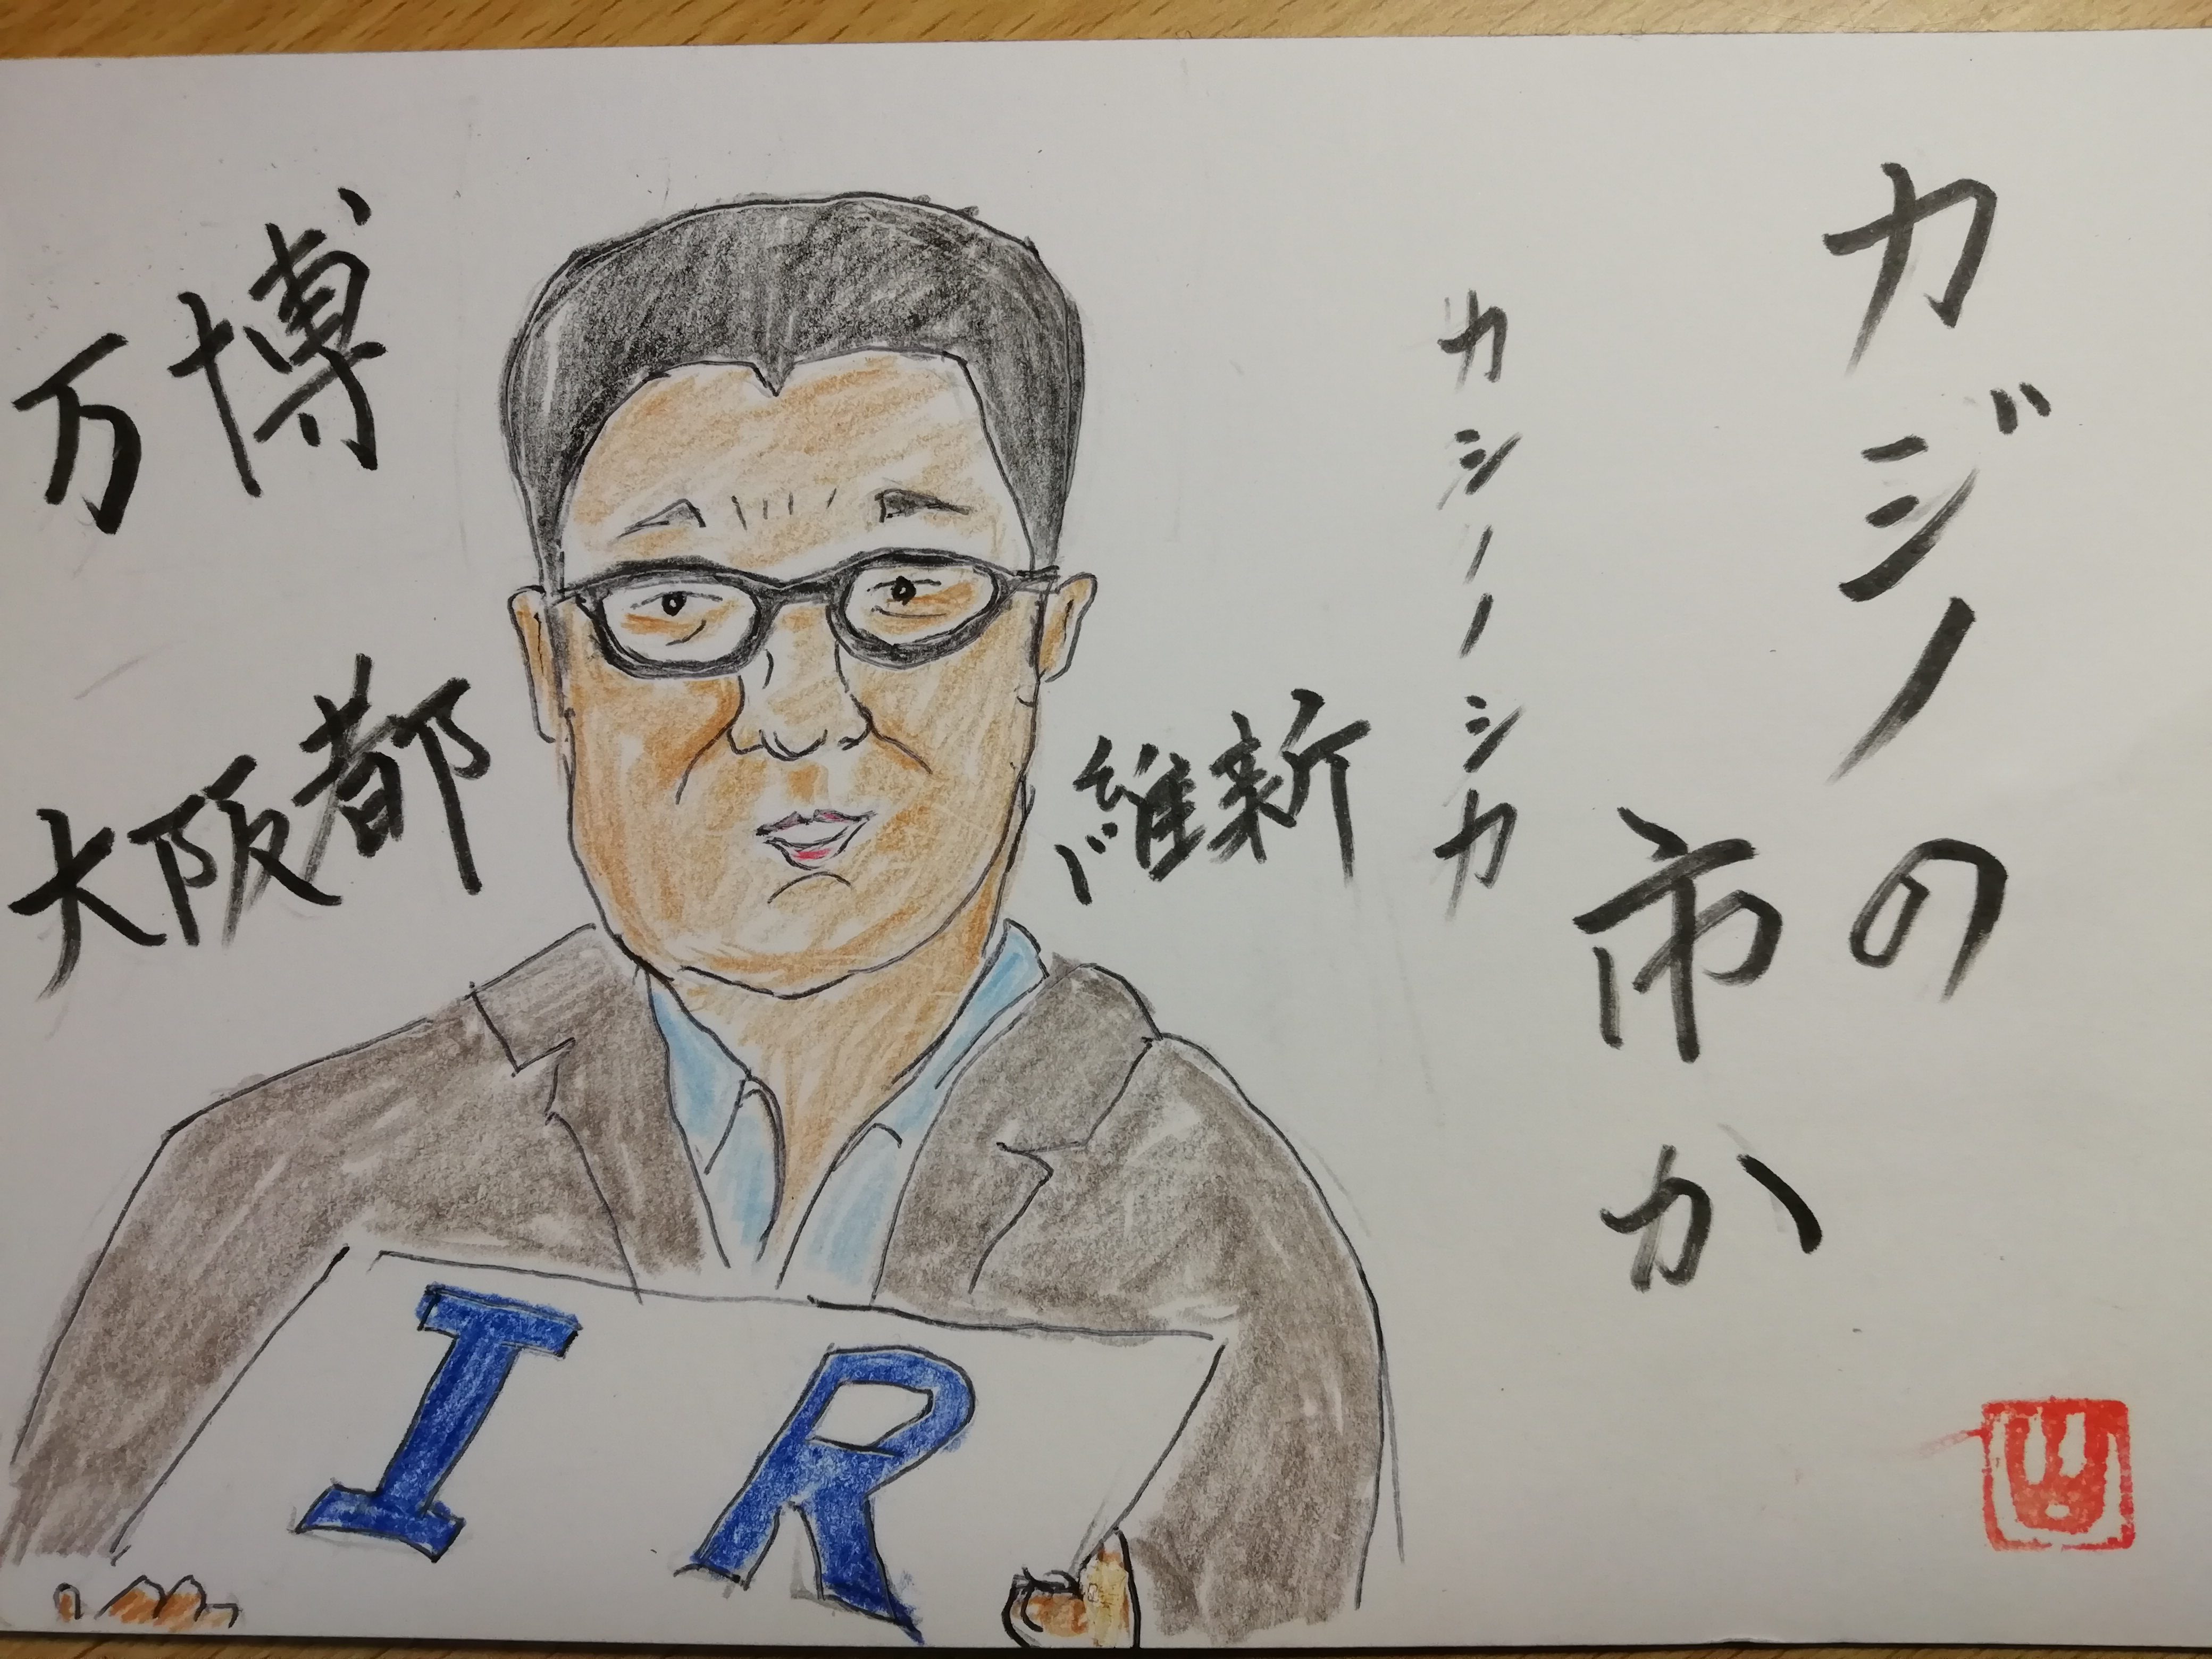 カジノの
市か
カシノノシカ
維新
万博
大阪都
IR